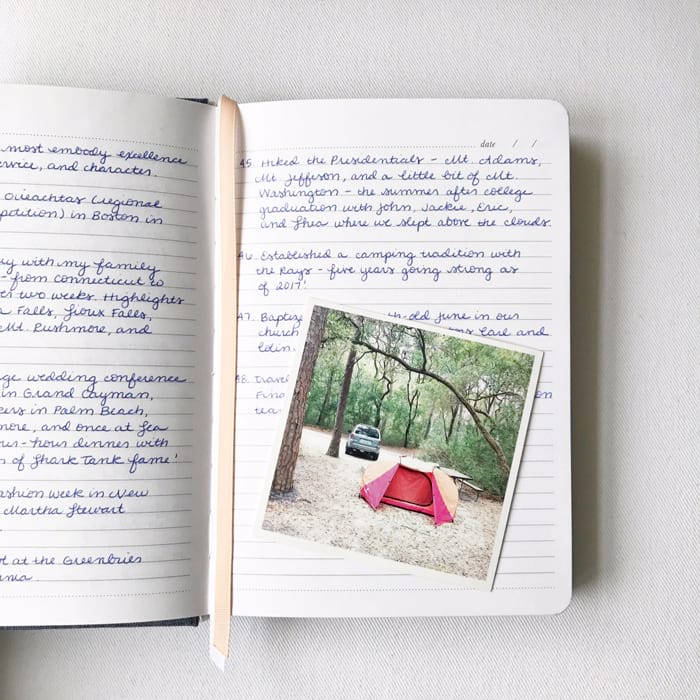 most embody excellence
service, and character.
Oireachtas (regional
in Boston in
with my family
- from Connecticut to
two weeks. Highlights
Falls, Sioux Falls,
Mt. Rushmore, and
wedding conference
in Grand Cayman,
in Palm Beach,
and once at Sea
-hour dinner with
of Shark Tank fame!
fashion week in New
Martha Stewart
at the Greenbrier
date / /
45. Hiked the Presidentials - Mt. Adams,
Mt. Jefferson, and a little bit of Mt.
Washington - the summer after college
graduation with John, Jackie, Eric,
and Shea where we slept above the clouds.
46. Established a camping tradition with
the Rays - five years going strong as
of 2017!
47. -old June in our
church Carl and
48.